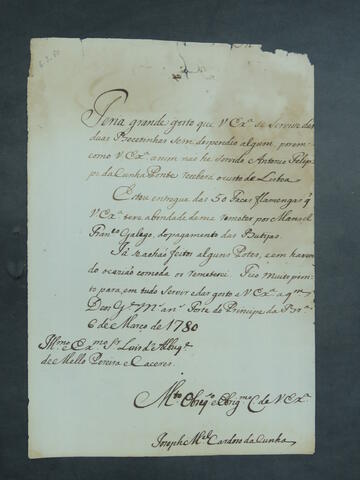 Teria grande gosto que V Exª. se servisse das
duas Bocetinhas sem despendio algum, porem
como V Exª. assim não he servido e Antonio Felip-
pe da Cunha Ponte receberá o custo de Lisboa.
Estou entregue das 50 Facas flamengas q̃
V Exª. teve a bondade de me remeter por Manoel
Franco Galego, do pagamento das Butijas.
Já se achaõ feitos alguns Potes, e em haven-
do ocaziaõ comoda os remeterei. Fico muito prom-
to para em tudo servir e dar gosto a V Exª. a qm.
Deos Gde. Ms. ans. Forte do Principe da Bra.
6 de Março de 1780
Illmo. e Exmo. Sr. Luis de Albuqe.
de Mello Pereira e Caceres.
Mto. Obrigdo. C. de V Exª.
Joseph Mel. Cardoso da Cunha